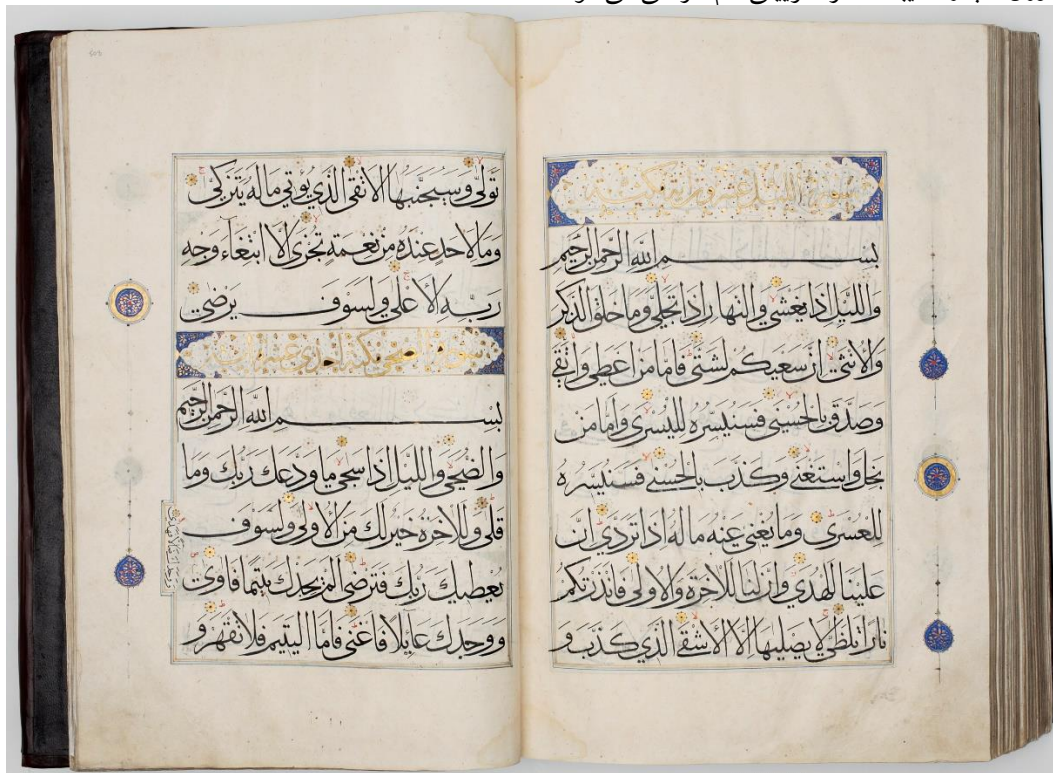 سورة الليل عشرون اية مكية
بسم الله الرحمن الرحيم
والليل اذا يغشى والنهار اذا تجلى وما خلق الذكر
والانثى ان سعيكم لشتى فاما من اعطى واتقى
وصدق بالحسنى فسنيسره لليسرى واما من
بخل واستغنى وكذب بالحسنى فسنيسره
للعسرى وما يغنى عنه ماله اذا تردى ان
علينا للهدى وان لنا للاخرة والاولى فانذرتكم
نارا تلظى لا يصليها الا الاشقى الذي كذب و
تولى وسيجنبها الاتقى الذي يؤتي ماله يتزكى
وما لاحد عنده من نعمة تجزى الا ابتغاء وجه
ربه الاعلى ولسوف يرضى
سورة الضحى مكية احدى عشرة
بسم الله الرحمن الرحيم
والضحى والليل اذا سجى ما ودعك ربك وما
قلى وللاخرة خير لك من الاولى ولسوف
يعطيك ربك فترضى الم يجدك يتيما فاوى
ووجدك ضالا فهدى
ووجدك عايلا فاغنى فاما اليتيم فلا تقهر و